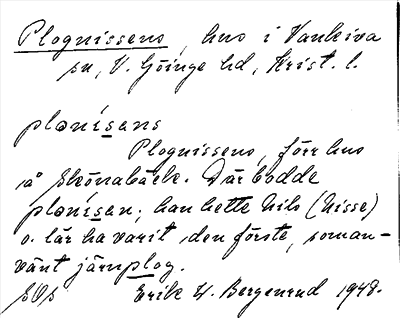 Plognissens, hus i Vankiva
sn, V. Göinge hd, Krist. l.
plonisens
Plognissens, förr hus
å Skönabäck. Där bodde
plonisen; han hette Nils (Nisse)
o. lär ha varit den förste, som an-
vänt järnplog.
SOS Erik W. Bergenrud 1948.